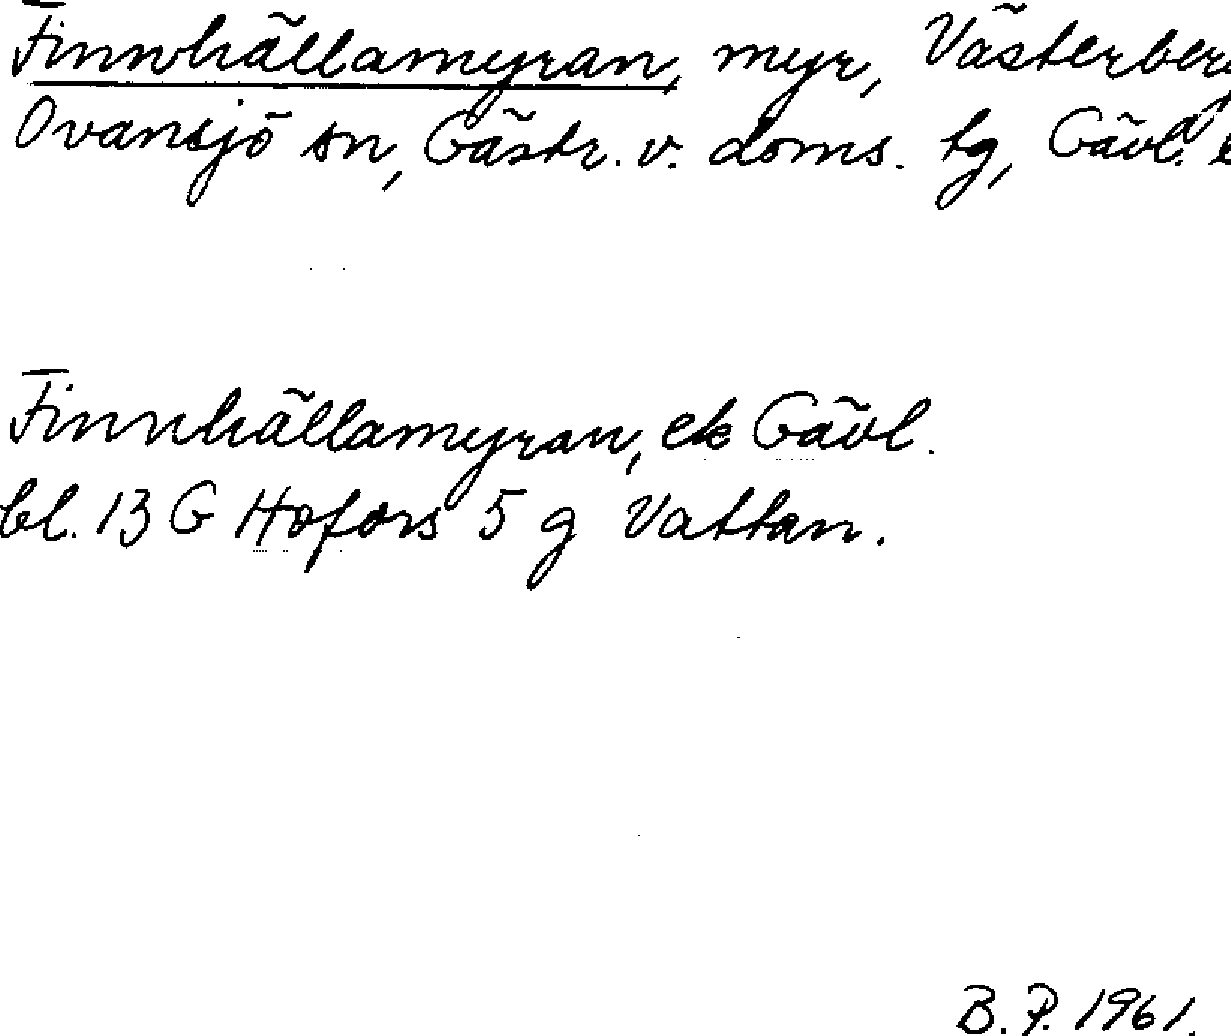 Finnhällamyran, myr, Västerberg
Ovansjö sn, Gästr. v. doms. tg, Gävl.
Finnhällamyran, ek Gävl.
bl. 13 G Hofors 5 g Vattan.
B. P. 1961.